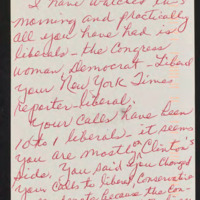 I have watched this
morning and practically
all you have had is
liberals - the Congress
woman, Democrat - Liberal
your New York Times
reporter - liberal.
Your calls have been
10 to 1 liberal - it seems
you are most on Clinton's
side. You said you changed
you calls to liberal, Conservative
because the Con-